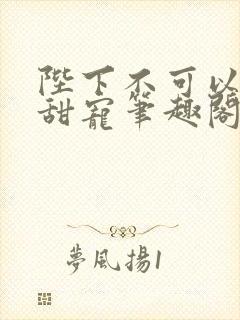 陛下不可以
甜寵筆趣閣
夢風揚1